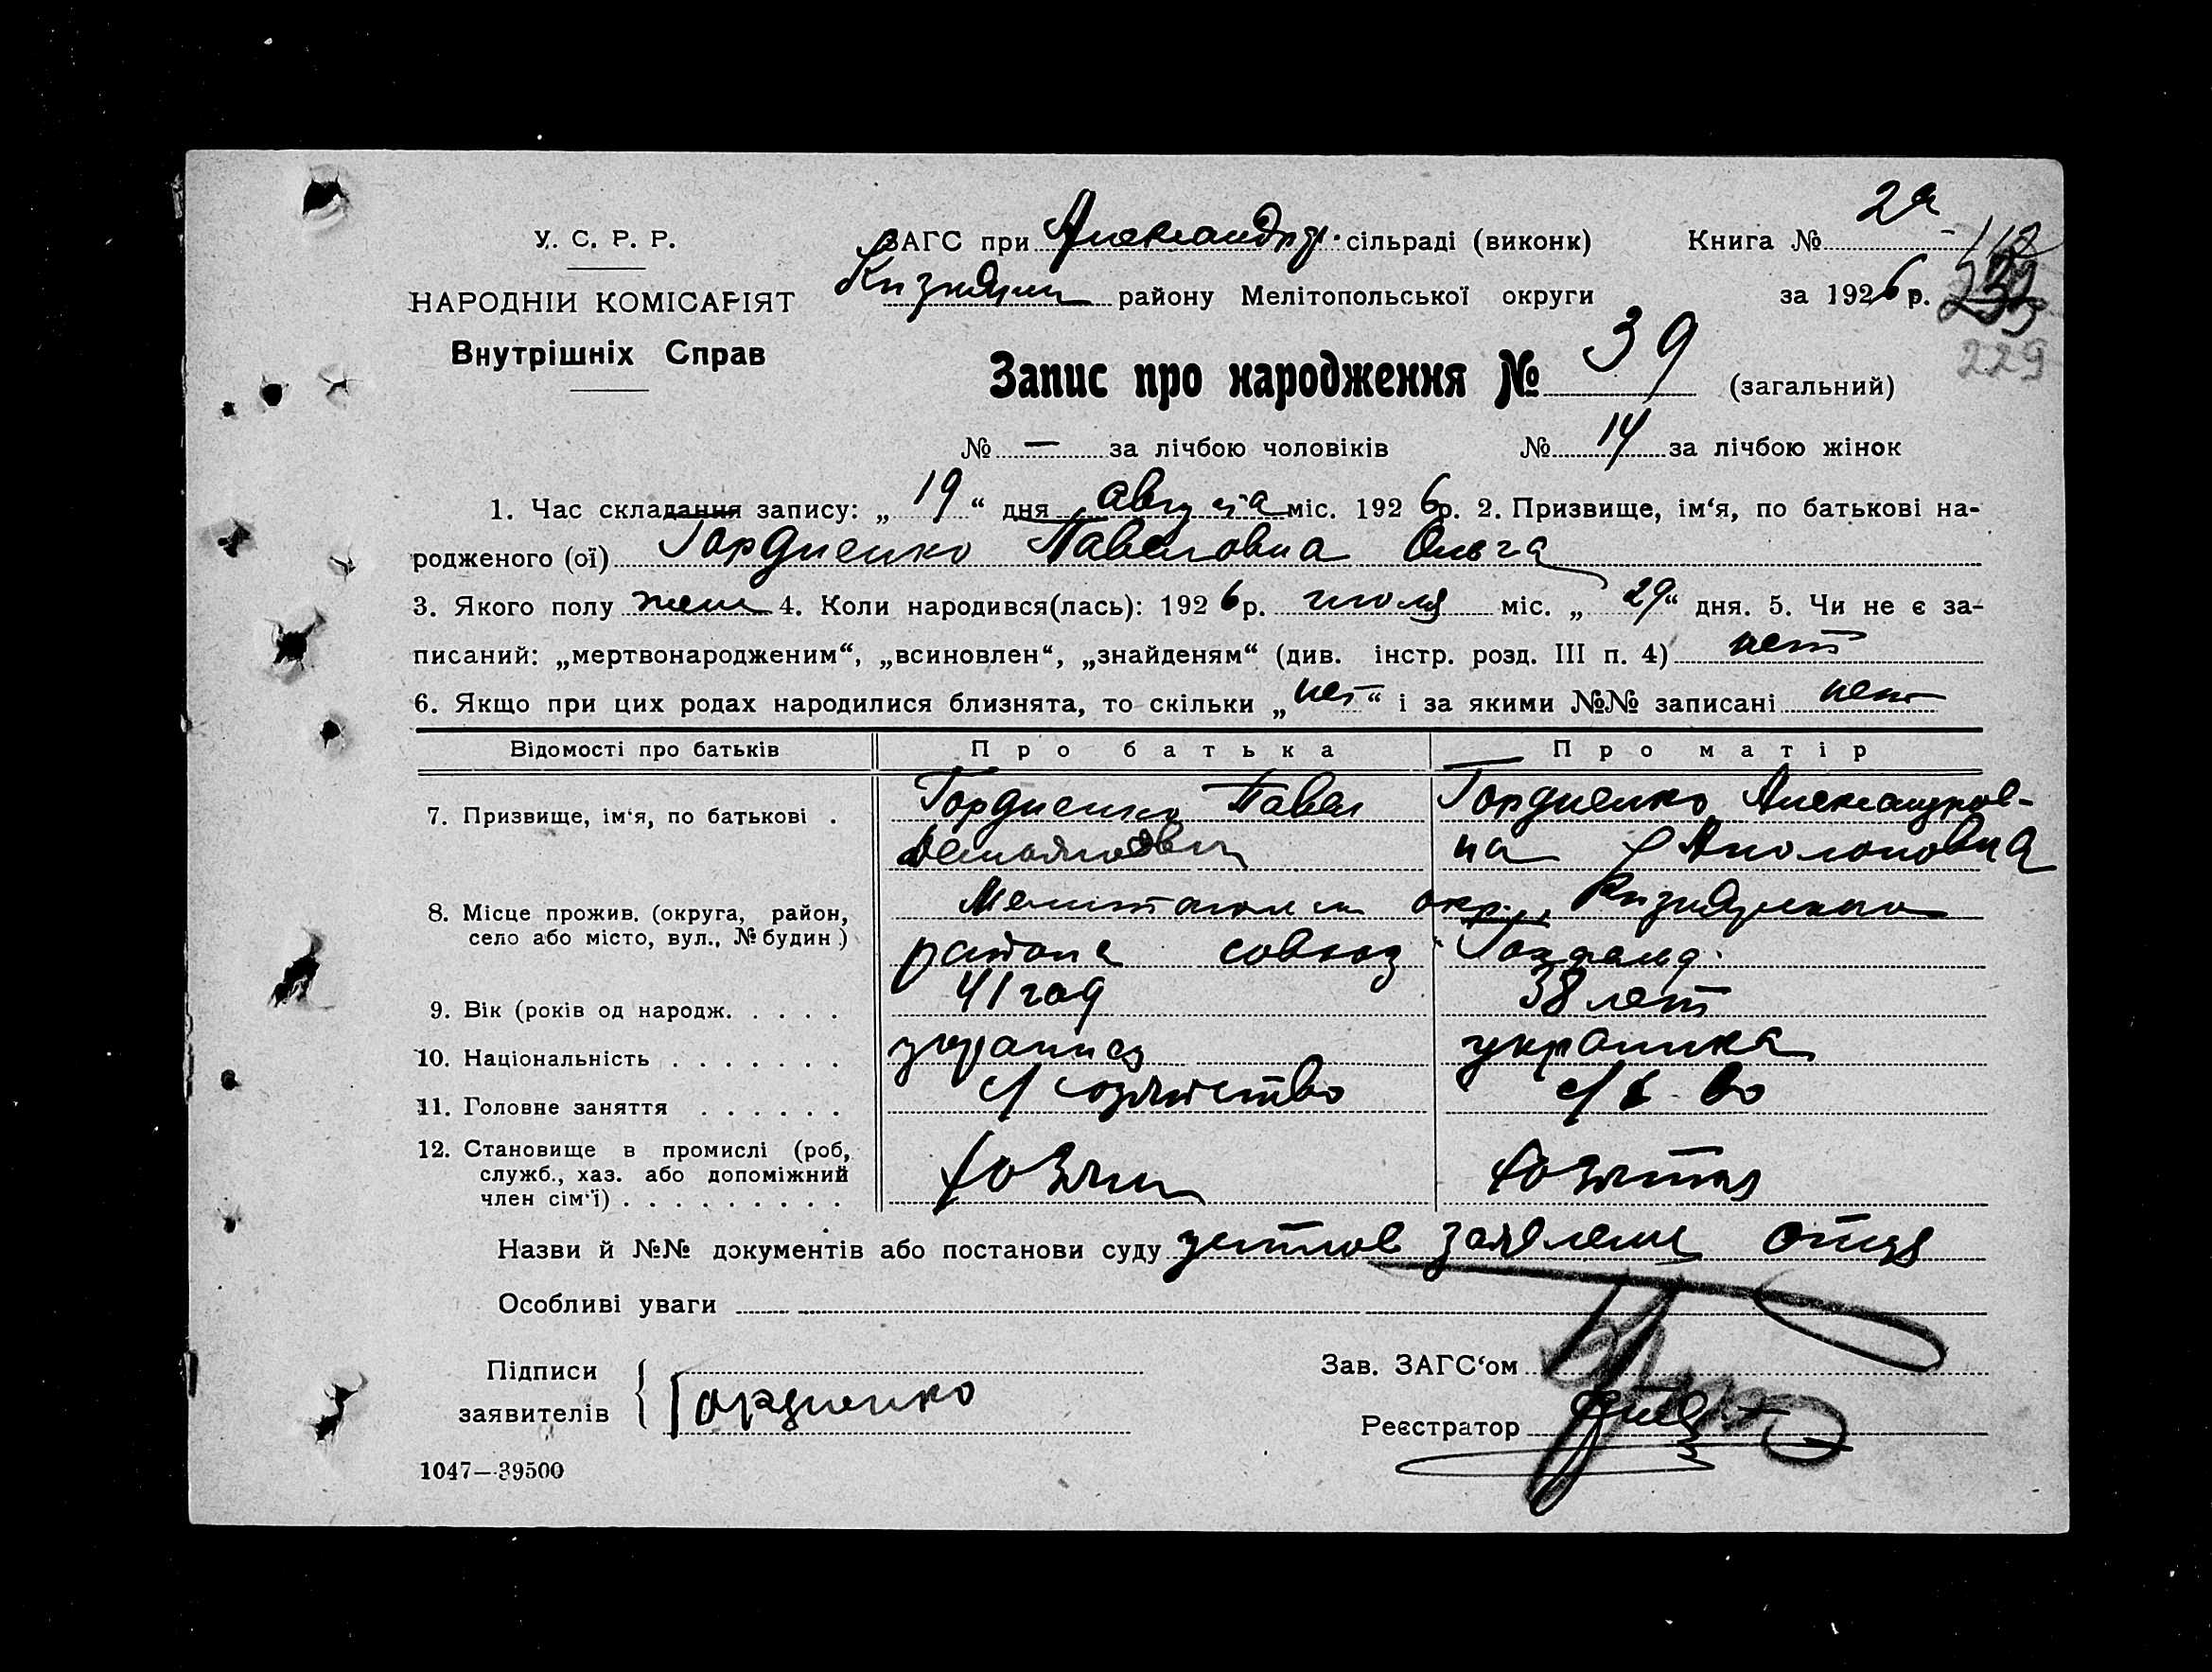 2а
У. С. Р. Р. ЗАГС при Александр. сільраді (виконк) Книга №
НАРОДНІЙ КОМІСАРІЯТ району Мелітопольської округи за 1926 р.
229
Внутрішніх Справ
Запис про народження № 39 (загальний)
№ — за лічбою чоловіків № 14 за лічбою жінок
1. Час складання запису: „ 19 “ дня августа міс. 1926 р. 2. Призвище, ім‘я, по батькові на-
родженого (ої) Гордиенко Павеловна Ольга
3. Якого полу жен 4. Коли народився(лась): 1926 р. июля міс. „ 29 “ дня. 5. Чи не є за-
писаний: „мертвонародженим“, „всиновлен“, „знайденям“ (див. інстр. розд. III п. 4) нет
6. Якщо при цих родах народилися близнята, то скільки „ нет “ і за якими №№ записані нет
Відомості про батьків Про батька Про матір
7. Призвище, ім‘я, по батькові . Гордиенко Павел Гордиенко Александров-
на
8. Місце прожив. (округа, район, окр.
село або місто, вул., № будин.) района
9. Вік (років од народж. . . . . 41 год 38 лет
10. Національність . . . . . . . украинец украинка
11. Головне заняття . . . . . . с/хозяйство с/х-во
12. Становище в промислі (роб,
служб., хаз. або допоміжний хозяин хозяйка
член сім‘ї) . . . . . . . . .
Назви й №№ документів або постанови суду заявлен отца
Особливі уваги
Підписи Зав. ЗАГС‘ом
заявителів Гордиенко
Реєстратор
1047—39500